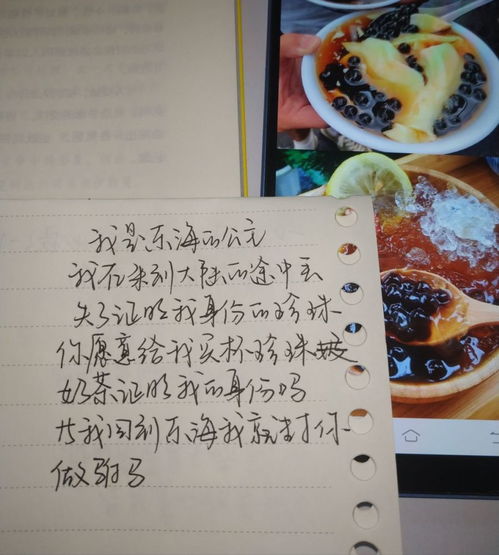 我是东海的公主
我在来到大陆的途中丢
失了证明我身份的珍珠
你愿意给我买杯珍珠
奶茶证明我的身份吗
我回到东海我就封你
做驸马